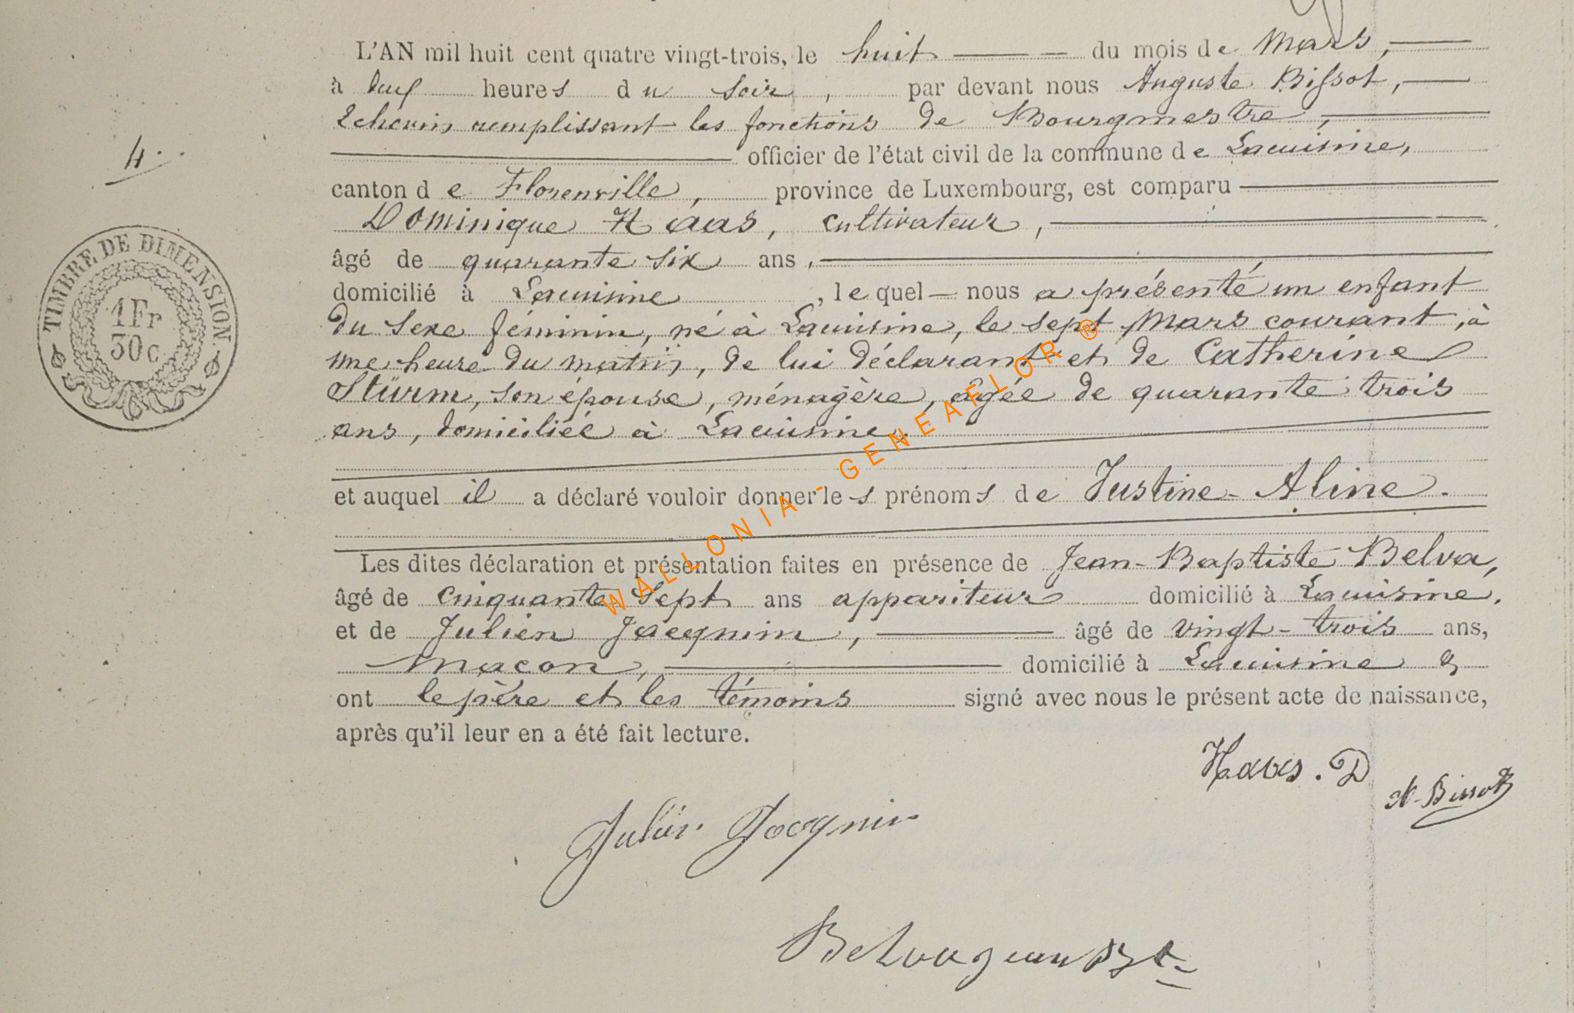 L'AN mil huit cent quatre vingt-trois, le huit du mois de Mars,
à heures du soir, par devant nous Auguste Bissot,
Echevin remplissant les fonctions de Bourgmestre,
officier de l'état civil de la commune de Lacuisine,
canton de Florenville, province de Luxembourg, est comparu
Dominique Haas, cultivateur,
âgé de quarante six ans,
domicilié à Lacuisine, lequel nous a présenté un enfant
du sexe féminin, né à Lacuisine, le sept Mars courant, à
une heure du matin, de lui déclarant et de Catherine
Stürm, son épouse, ménagère, agée de quarante trois
ans, domiciliée à Lacuisine.
et auquel il a déclaré vouloir donner les prénoms de Justine-Aline.
Les dites déclaration et présentation faites en présence de Jean-Baptiste Belva,
âgé de cinquante sept ans appariteur domicilié à Lacuisine,
et de Julien Jacqmin, âgé de vingt-trois ans,
macon, domicilié à Lacuisine &
ont le père et les témoins signé avec nous le présent acte de naissance,
après qu'il leur en a été fait lecture.
4.
TIMBRE DE DIMENSION
1 Fr
30 c
WALLONIA - GENEAFLOR ®
Haas. D
A. Bissot
Julien Jacqmin
Belva jean Bte